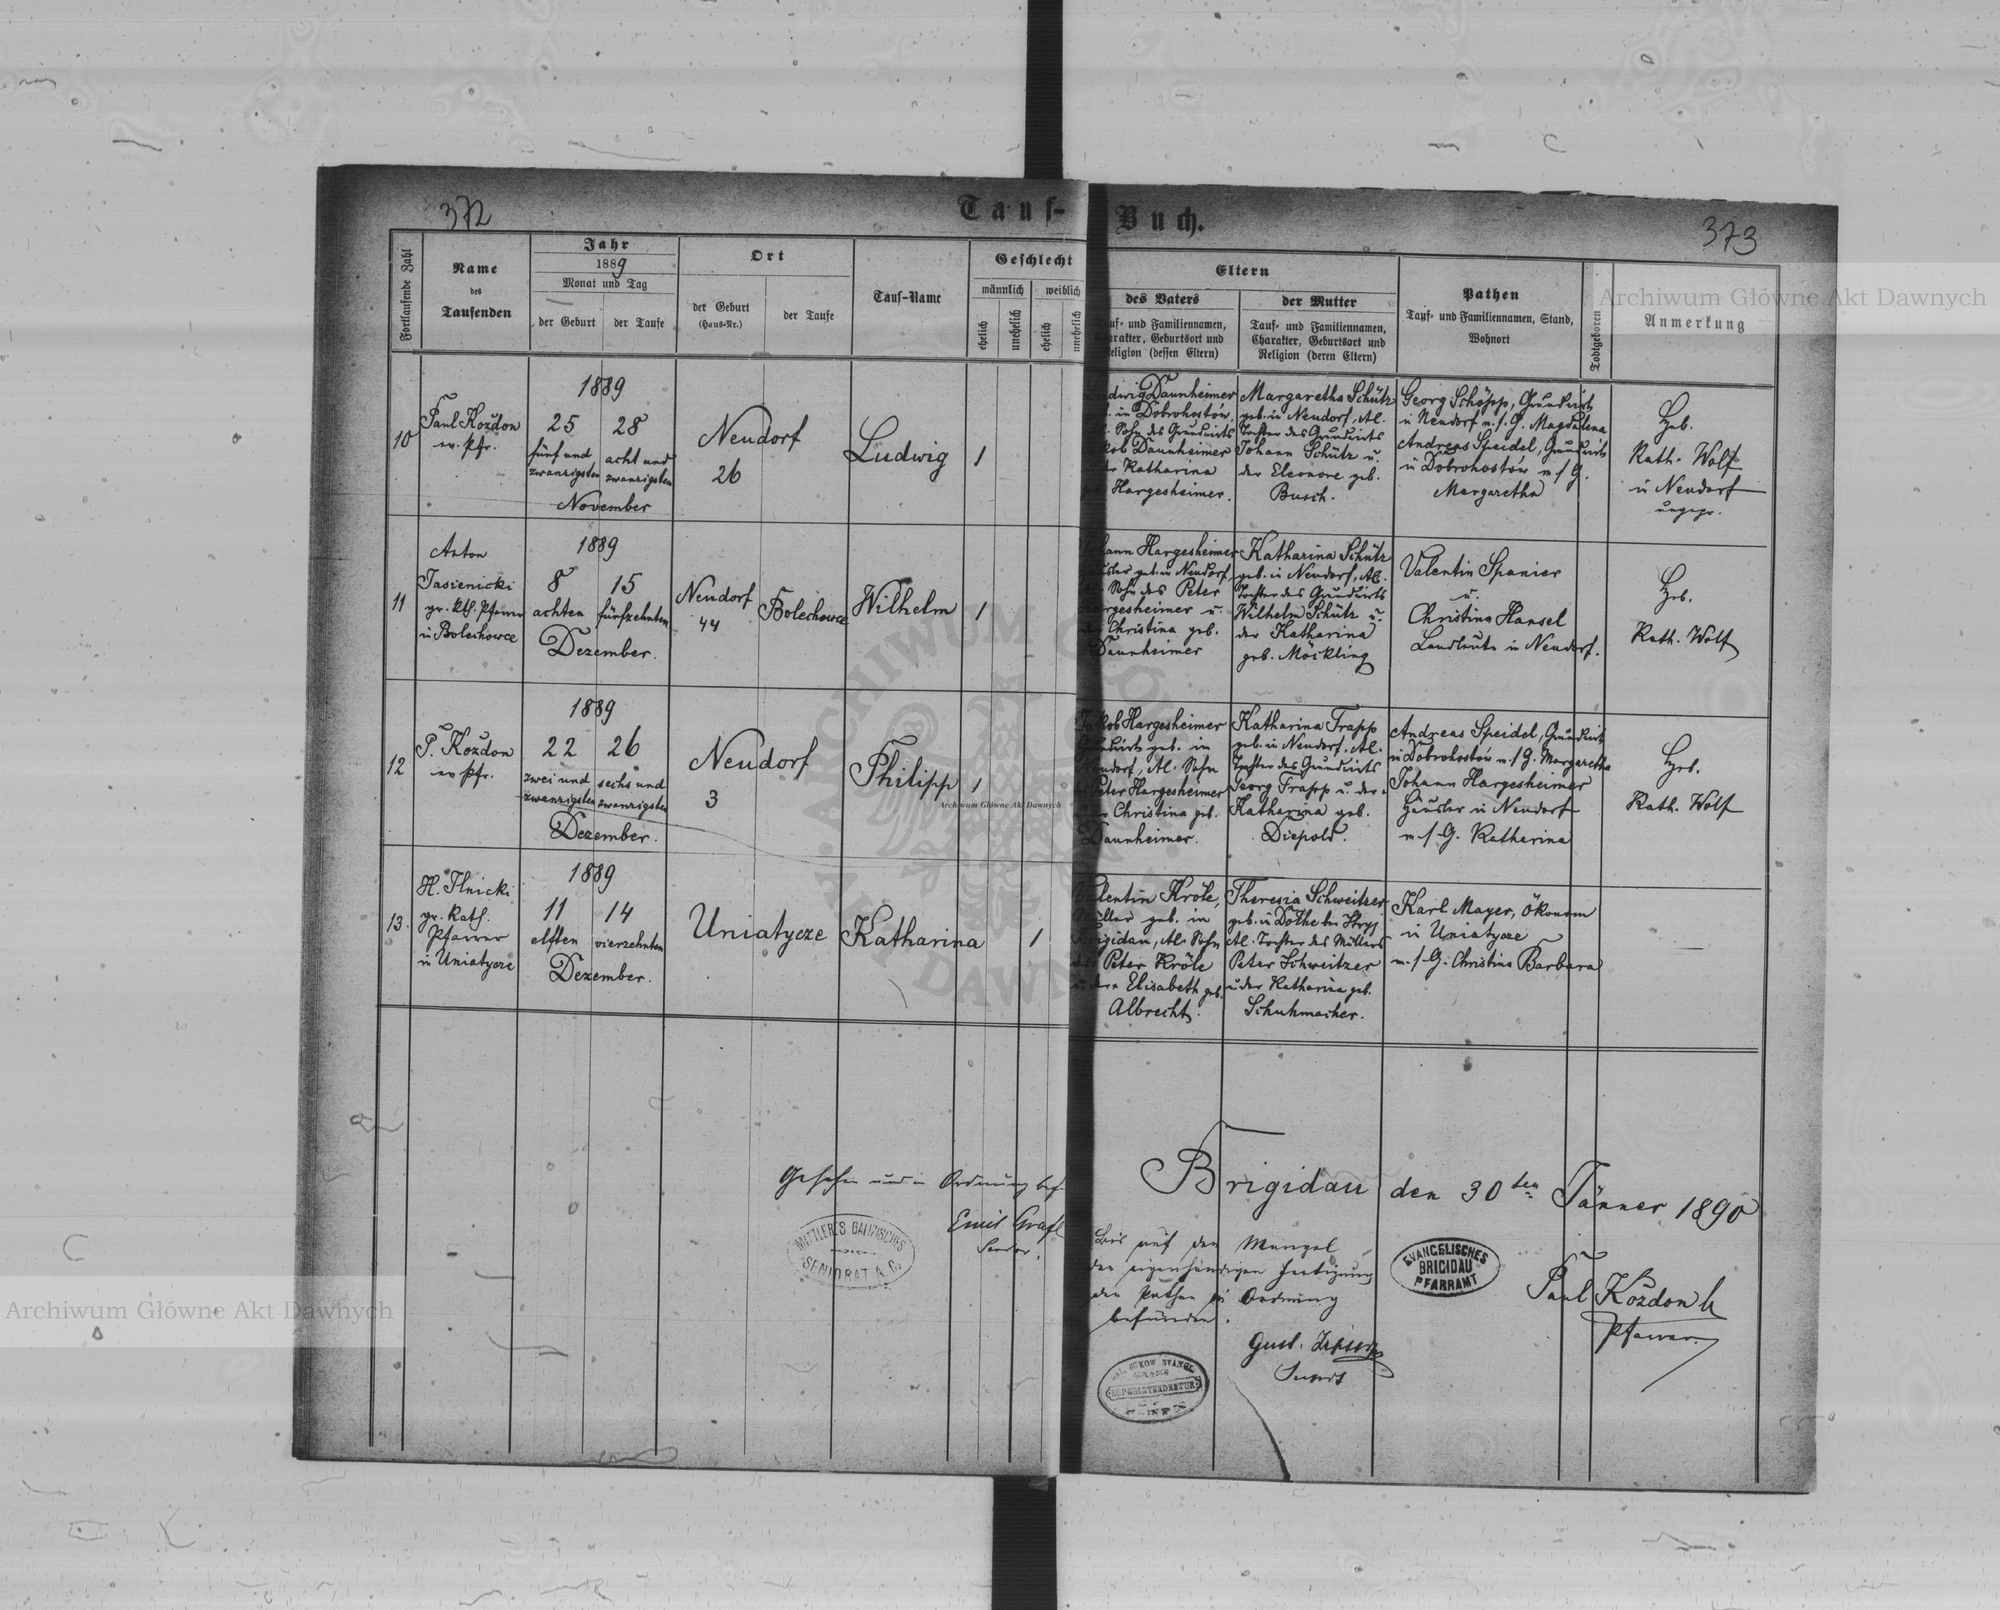 372
Tauf-
Buch.
373
Fortlaufende Zahl
Name
des
Taufenden
Jahr
1889
Monat und Tag
der Geburt
der Taufe
Ort
der Geburt
(Haus-Nr.)
der Taufe
Tauf-Name
Geschlecht
männlich
weiblich
ehelich
unehelich
ehelich
unehelich
Eltern
des Vaters
auf- und Familiennamen,
arakter, Geburtsort und
eligion (dessen Eltern)
der Mutter
Tauf- und Familiennamen,
Charakter, Geburtsort und
Religion (deren Eltern)
Pathen
Tauf- und Familiennamen, Stand,
Wohnort
Todtgeboren
Anmerkung
10
Paul Kozdon
ev. Pfr.
1889
25
28
fünf und
zwanzigsten
acht und
zwanzigsten
November
Neudorf
26
Ludwig
1
dwig Daunheimer
. in Dobrohostow,
Sohn des Grundwirts
kob Daunheimer
r Katharina
Hargesheimer.
Margaretha Schütz
geb. in Neudorf, Al.
Tochter des Grundwirts
Johann Schütz u.
der Eleonore geb.
Busch.
Georg Schöpp, Grundwirt
in Neudorf m. s. G. Magdalena
Andreas Speidel, Grundwirt
in Dobrohostów m. s. G.
Margaretha
Heb.
Kath. Wolf
in Neudorf
ungepr.
11
Anton
Jasienicki
gr. kth. Pfarrer
in Bolechowce
1889
8
15
achten
fünfzehnten
Dezember.
Neudorf
44
Bolechowce
Wilhelm
1
ann Hargesheimer
usler geb. in Neudorf,
Sohn des Peter
Hargesheimer u.
der Christina geb.
Daunheimer
Katharina Schütz
geb. in Neudorf, Al.
Tochter des Grundwirts
Wilhelm Schütz u.
der Katharina
geb. Möckling
Valentin Spanier
u.
Christina Hansel
Landleute in Neudorf.
Heb.
Kath. Wolf
12
P. Kozdon
ev. Pfr.
1889
22
26
zwei und
zwanzigsten
sechs und
zwanzigsten
Dezember.
Neudorf
3
Philipp
1
Jakob Hargesheimer
Grundwirt geb. in
Neudorf, Al. Sohn
des Peter Hargesheimer
Christina geb.
Daunheimer.
Katharina Trapp
geb. in Neudorf, Al.
Tochter des Grundwirts
Georg Trapp u. der
Katharina geb.
Diepold.
Andreas Speidel, Grundwirt
in Dobrohostów m. s. G. Margaretha
Johann Hargesheimer
Häusler in Neudorf
m. s. G. Katharina
Heb.
Kath. Wolf
13.
H. Ilnicki
gr. kath.
Pfarrer
in Uniatycze
1889
11
14
elften
vierzehnten
Dezember.
Uniatycze
Katharina
1
Valentin Kröle,
Müller geb. in
Brigidau, Al. Sohn
des Peter Kröle
u. der Elisabeth geb.
Albrecht.
Theresia Schweitzer
geb. in Dothe bei Stryj
Al. Tochter des Müllers
Peter Schweitzer
u. der Katharina geb.
Schuhmacher.
Karl Mayer, Ökonom
in Uniatycze
m. s. G. Christina Barbara
Gesehen und in Ordnung bef
Emil Grafl
Senior.
MITTLERES GALIZISCHES
SENIORAT A.C.
Brigidau den 30ten Jänner 1890
Bis auf den Mangel
der eigenhändigen Fertigung
der Pathen in Ordnung
befunden.
EVANGELISCHES
BRIGIDAU
PFARRAMT
Paul Kozdon
Pfarrer.
SUPERINTENDENTUR
Archiwum Główne Akt Dawnych
Archiwum Główne Akt Dawnych
Archiwum Główne Akt Dawnych
ARCHIWUM GŁÓWNE AKT DAWNYCH